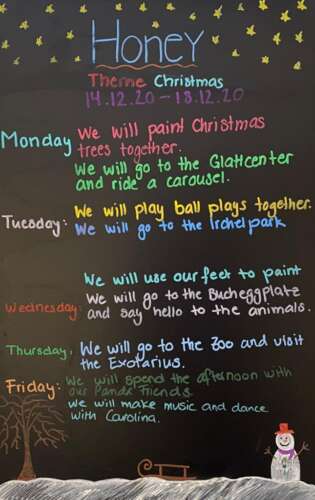 Honey
Theme Christmas
14.12.20 - 18.12.20
Monday We will paint Christmas
trees together.
We will go to the Glattcenter
and ride a carousel.
Tuesday: We will play ball plays together.
We will go to the Irchelpark
We will use our feet to paint
Wednesday: We will go to the Bucheggplatz
and say hello to the animals.
Thursday: We will go to the Zoo and visit
the Exotarius.
Friday: We will spend the afternoon with
our Panda Friends.
We will make music and dance
with Carolina.